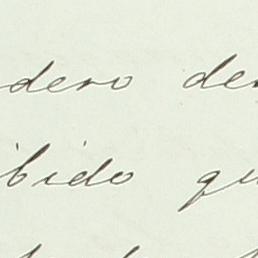 dero de
bido qu